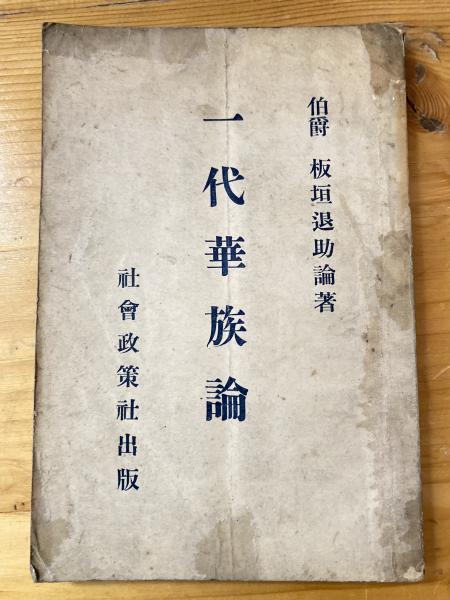 伯爵 板垣退助論著
一代華族論
社會政策社出版